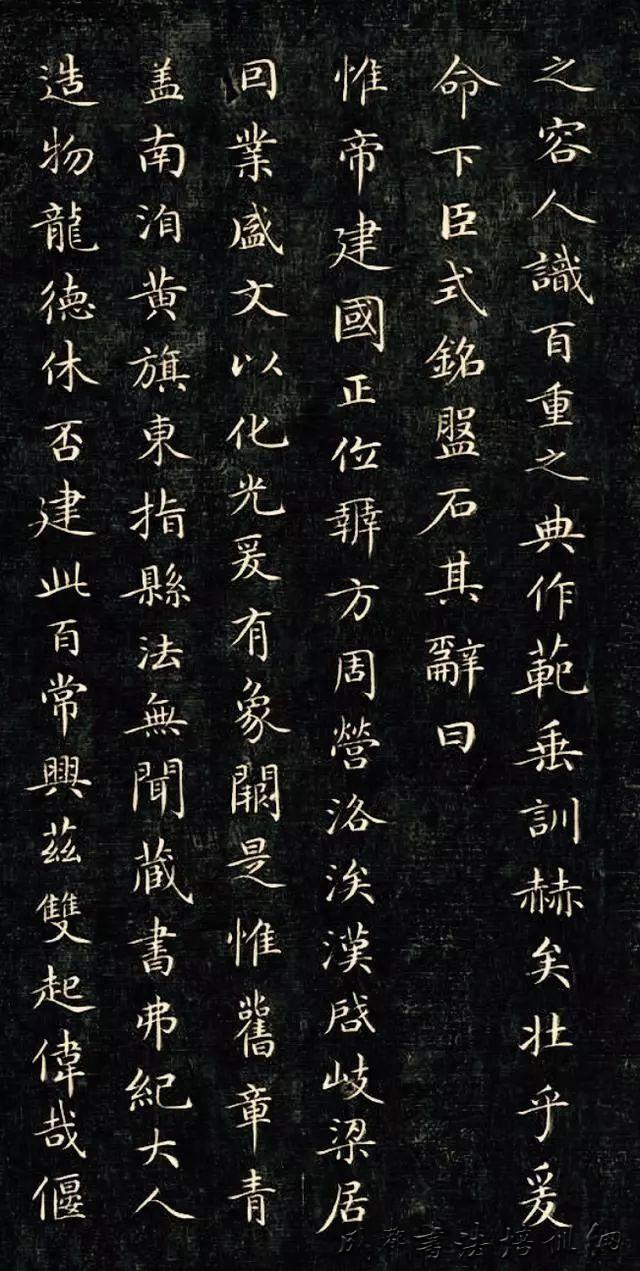 之容人識百重之典作範垂訓赫矣壯乎爰
命下臣式銘盤石其辭曰
惟帝建國正位辨方周營洛涘漢启岐梁居
囙業盛文以化光爰有象闕是惟舊章青
盖南洎黄旗東指縣法無聞蔵書弗紀大人
造物龍德休否建此百常興茲雙起偉哉偃
成都書法培训網